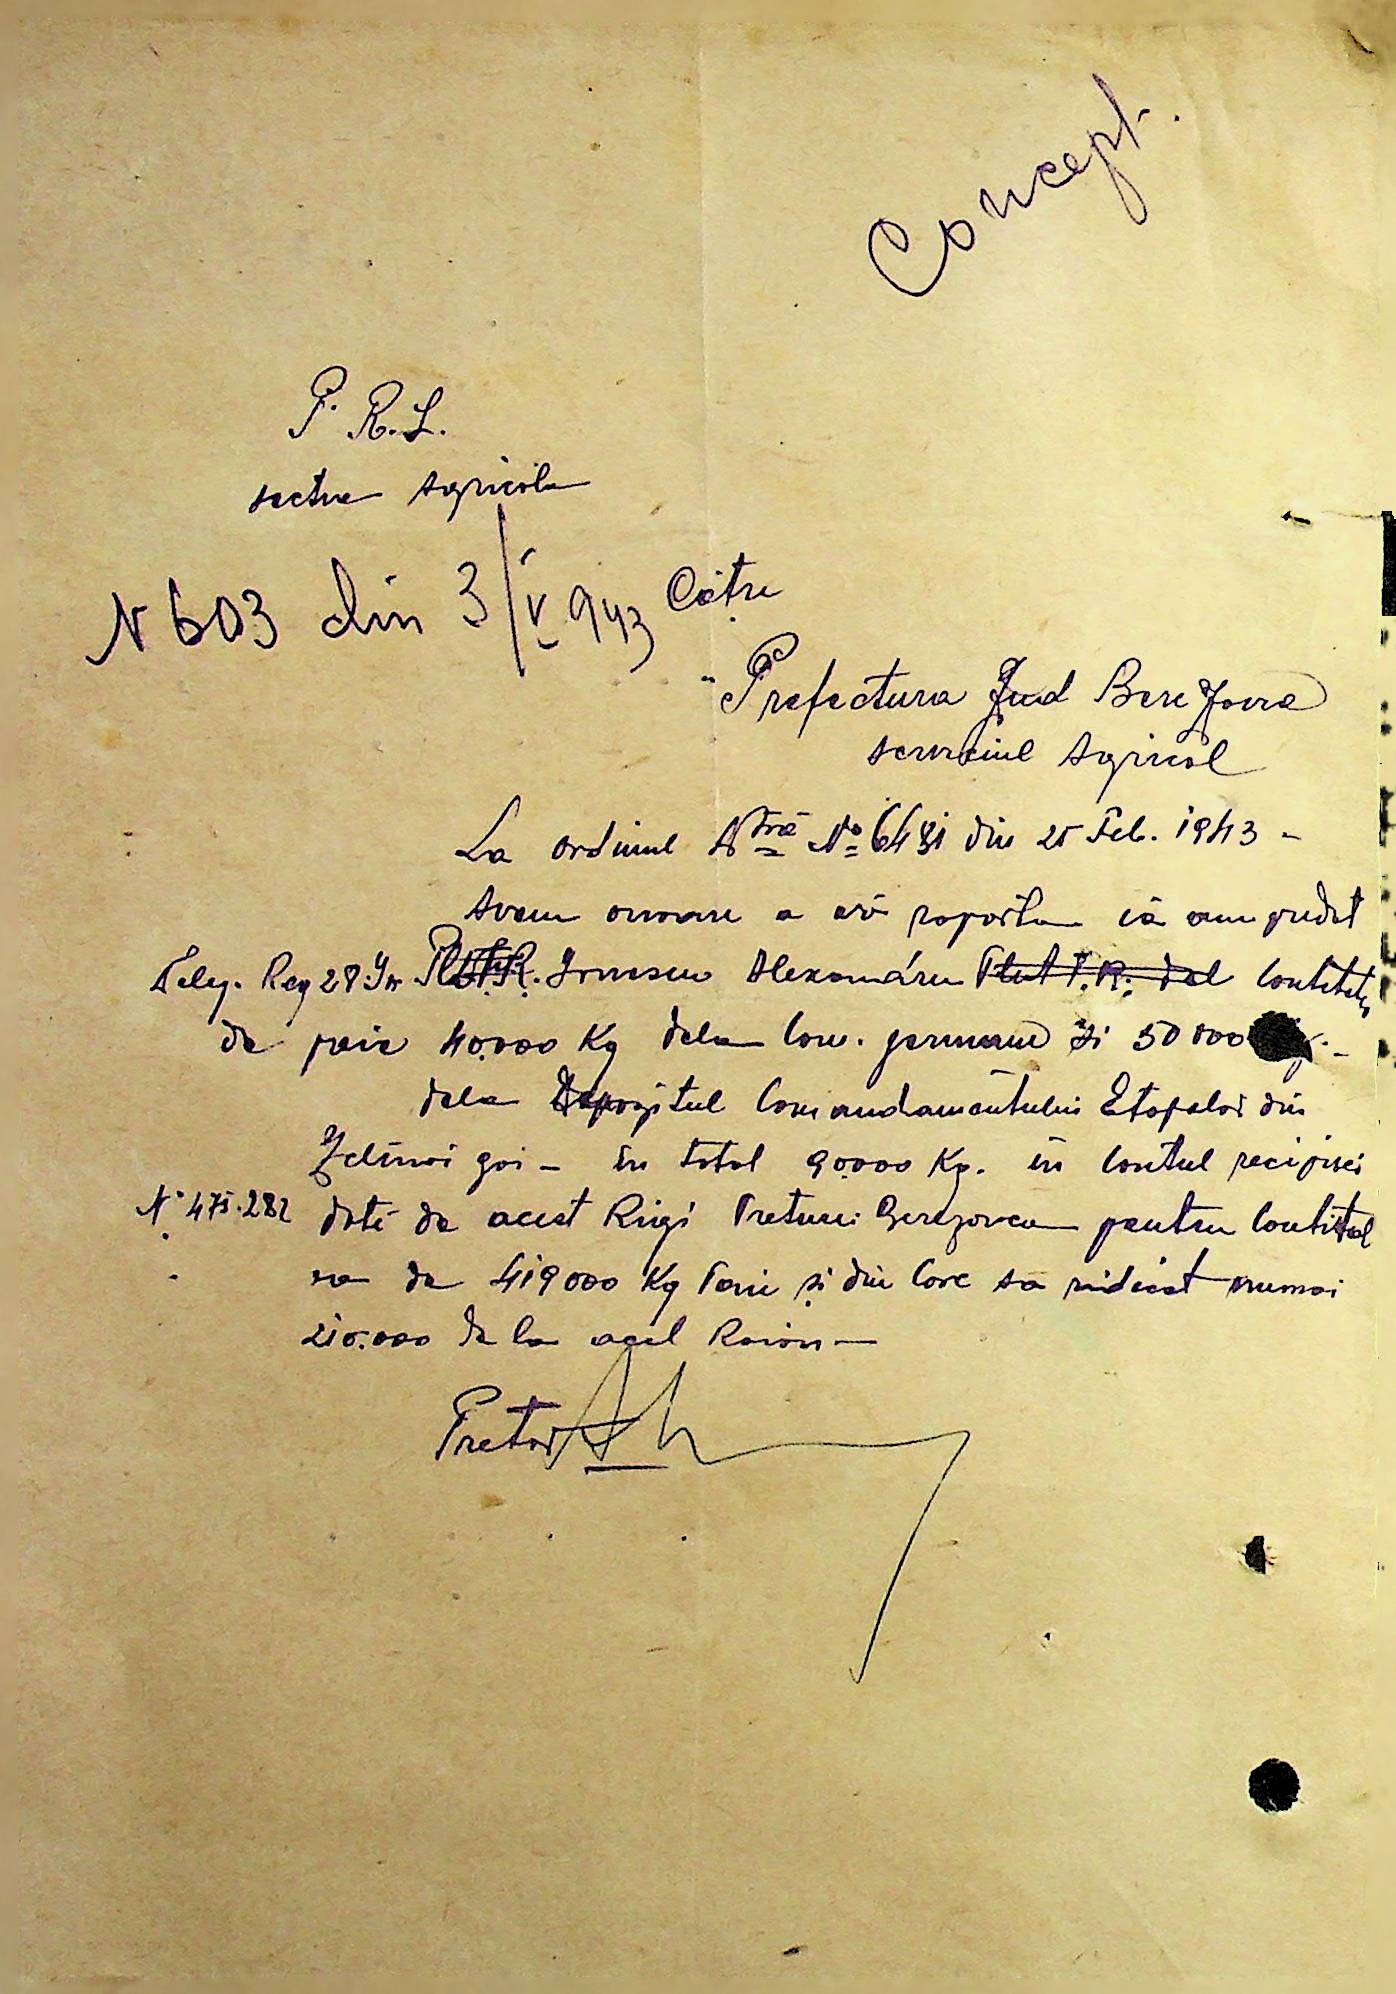 Concept.
P. R. L.
sectia Agricola
N 603 din 3/V 943
Către
Prefectura Jud Berezovca
serviciul Agricol
La ordinul Dvstră No 6481 din 25 Feb. 1943 -
Avem onoare a vă raporta că am predat
Deleg. Reg 28 Inf Plut. T.R. Ionescu Alexandru Plut T.R. del Contitatea
de paie 40.000 Kg dela Com. germane și 50000
dela Depozitul Comandamentului Etapelor din
Zelinoi gai - în total 90.000 Kg. în Contul recipisei
No 475.282 date de acest Regi Preturei Berezovca pentru Contitatea
sa de 419000 Kg Paie și din Care sa ridicat numai
210.000 de la acel Raion -
Pretor